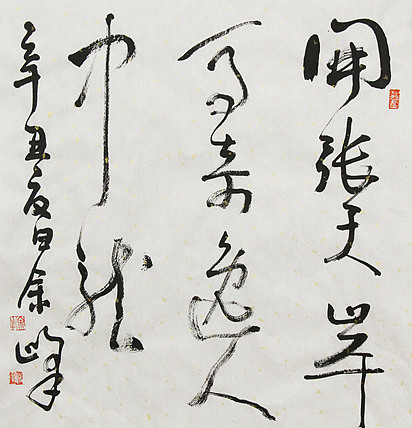 開張天岸
馬奇逸人
中龍
辛丑夏日余峰